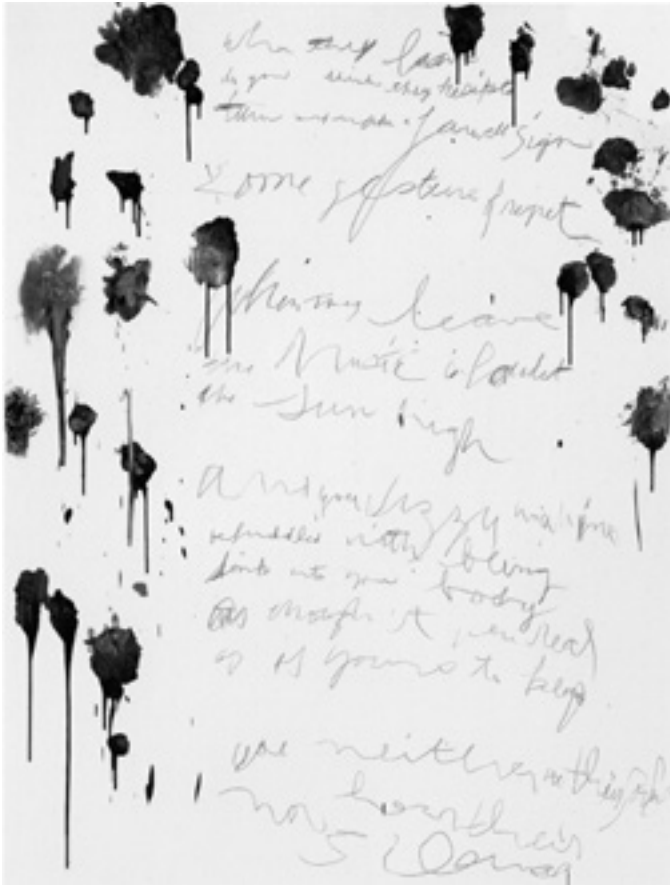 When they leave
do you think they hesitate
turn and make a farewell sign
some gesture of regret
When they leave
the Music is loudest
the Sun high
and you dizzy with wine
befuddled with being
sink into your body
as though it were real
as if yours to keep
you neither
nor hear their
Silence